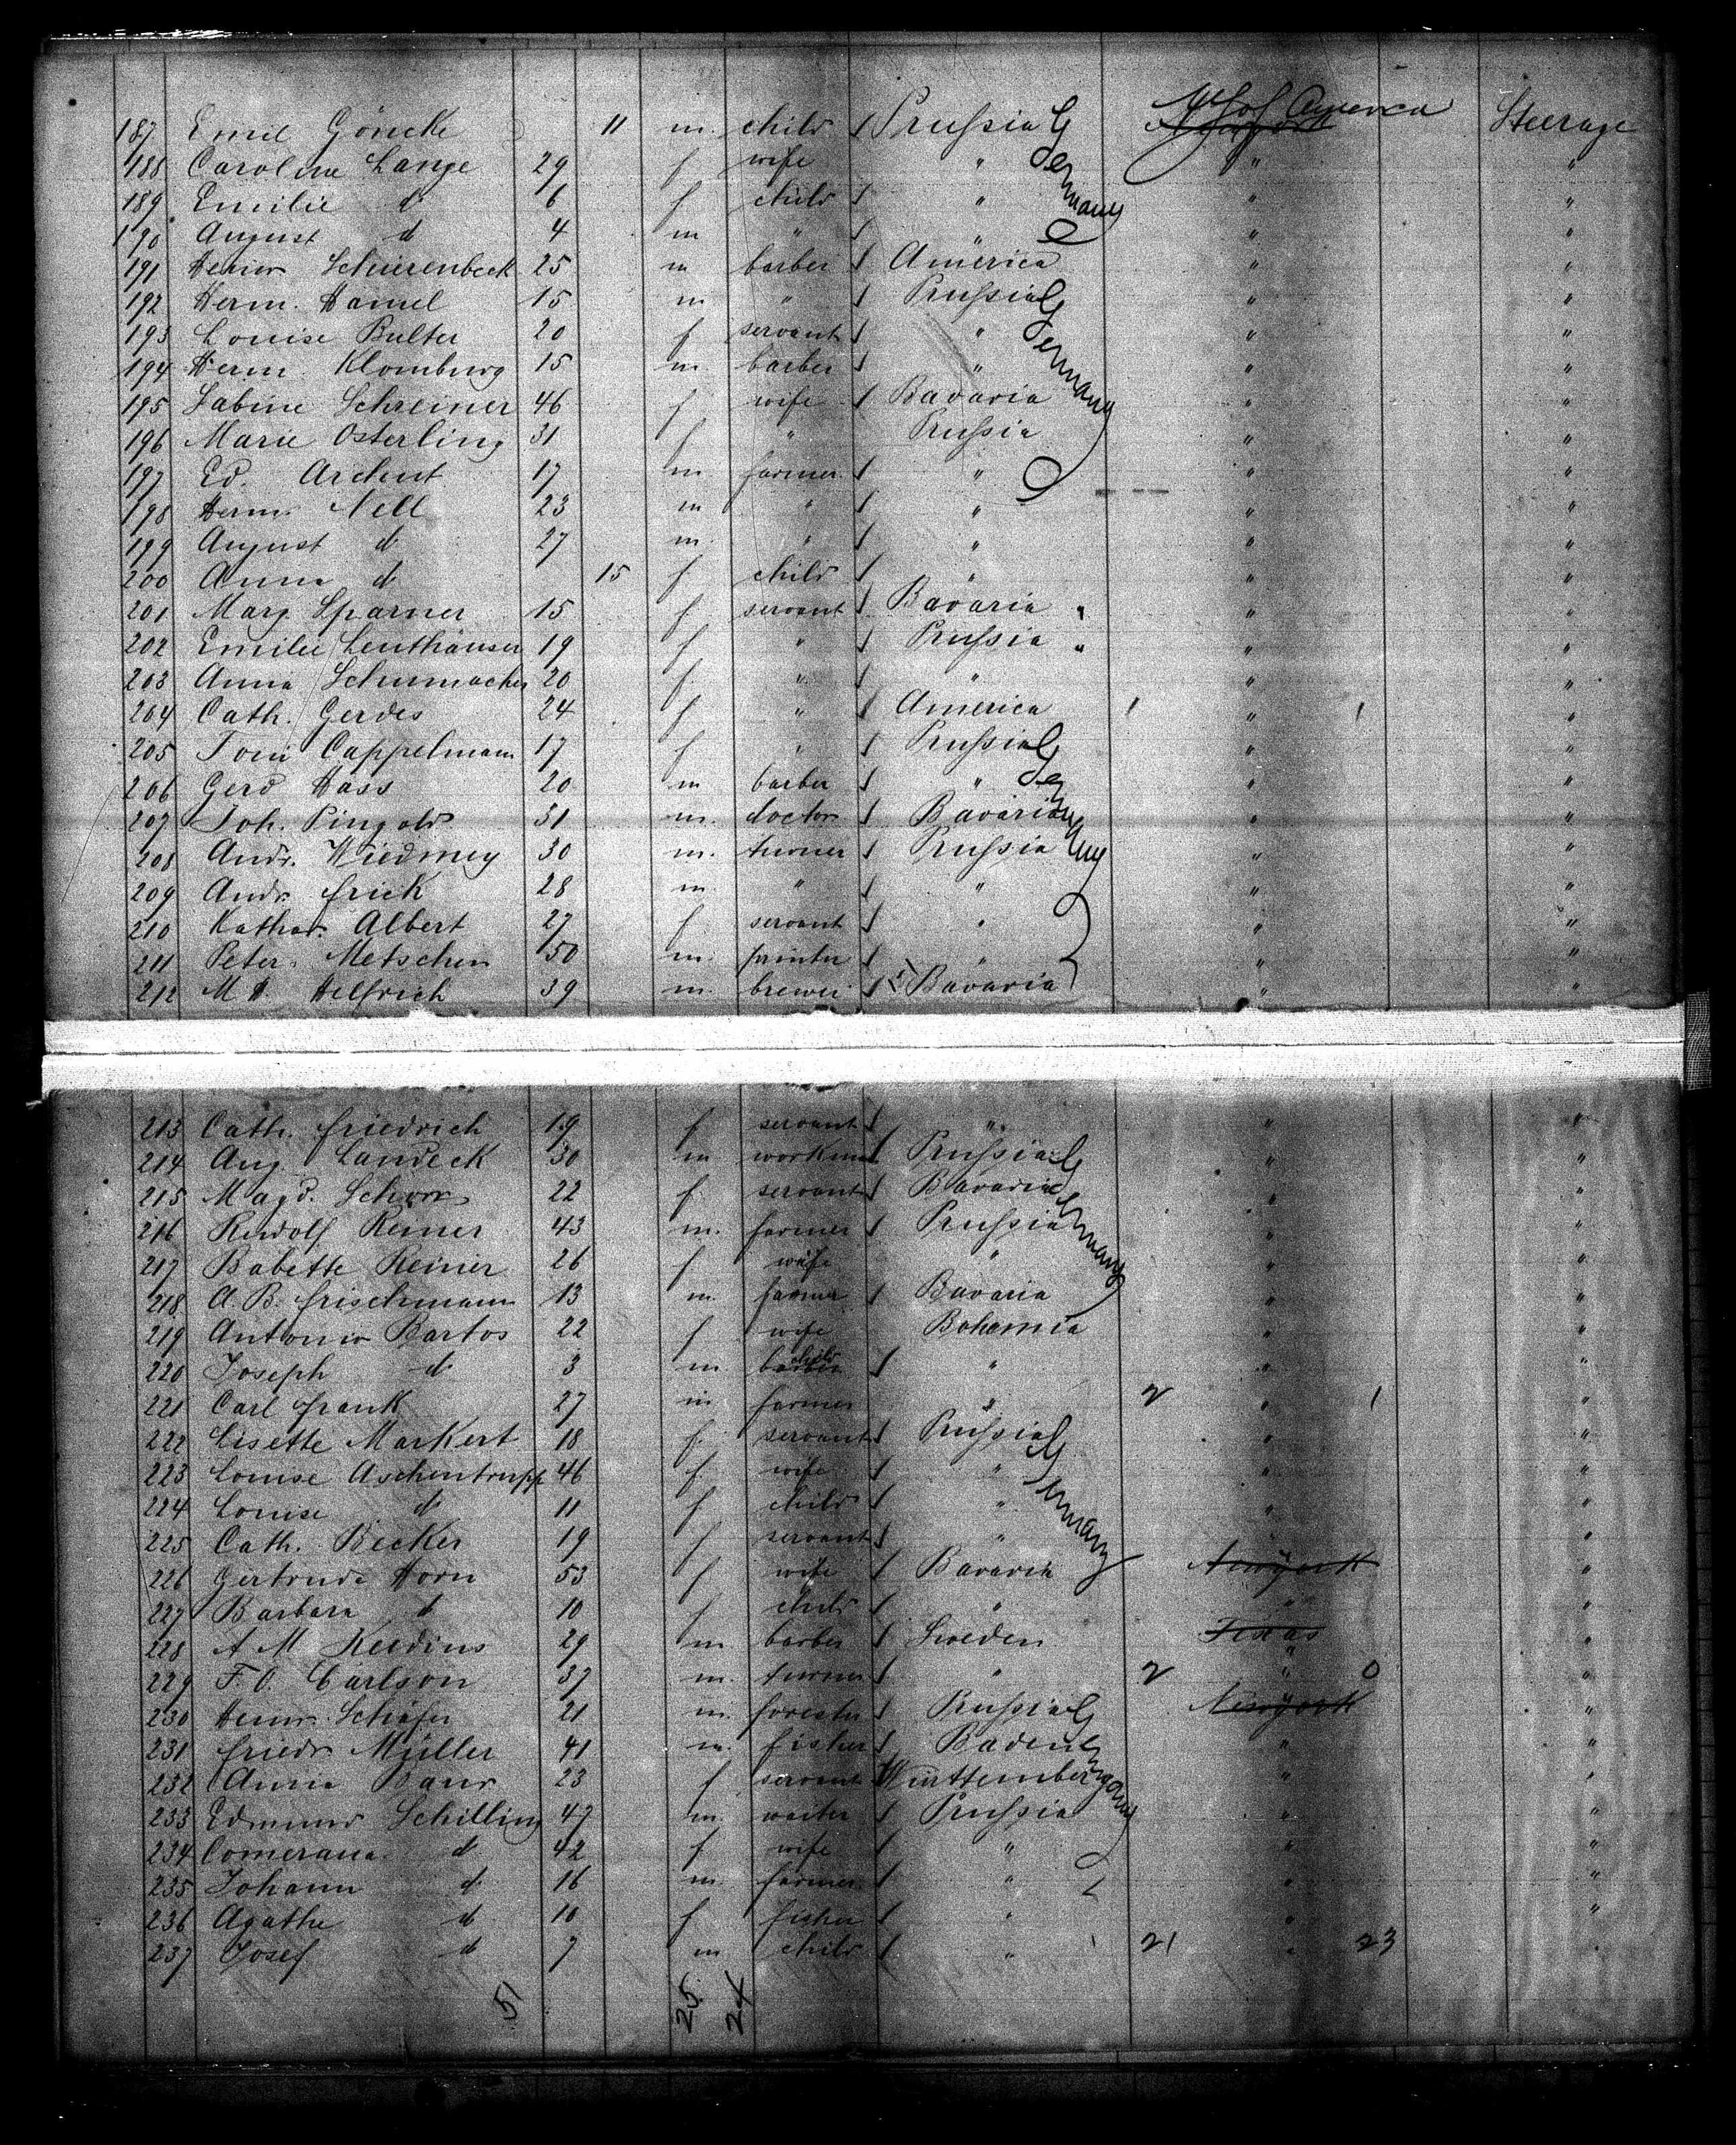 187 Emil Göncke 11 m. child / Prussia U S of America Newyork Steerage
188 Caroline Lange 29 f wife " " "
189 Emilie d 6 f child / " " "
190 August d 4 m " / " " "
Germany
191 Heinr. Schierenbeck 25 m barber / America " "
192 Herm. Hamel 15 m " / Prussia " "
193 Louise Bulter 20 f servant / " " "
194 Herm. Klomburg 15 m barber / " " "
Germany
195 Sabine Schreiner 46 f wife / Bavaria " "
196 Marie Osterling 31 f " Prussia " "
197 Ed. Archut 17 m. farmer / " " "
198 Herm. Nell 23 m " / " " "
199 August d 27 m. " / " " "
200 Anna d 15 f child / " " "
201 Marg. Sparner 15 f servant / Bavaria " " "
202 Emilie Leuthäuser 19 f " / Prussia " " "
203 Anna Schumacher 20 f " / " " "
204 Cath. Gerdes 24 f " / America 1 " 1 "
205 Toni Cappelmann 17 f " / Prussia " "
206 Gerd Hass 20 m barber / " " "
Germany
207 Joh. Pingold 31 m. doctor / Bavaria " "
208 Andr. Wiedmey 30 m. turner / Prussia " "
209 Andr. Frick 28 m. " / " " "
210 Kathar. Albert 27 f servant / " " "
211 Peter Metschen 50 m. printer / " " "
212 M H. Helfrich 39 m. brewer / Bavaria " "
213 Cath. Friedrich 19 f servant / " " "
214 Aug. Landeck 30 m workman / Prussia " "
215 Magd. Schorr 22 f. servant / Bavaria " "
Germany
216 Rudolf Reiner 43 m. farmer / Prussia " "
217 Babette Reiner 26 f wife " " "
218 A. B. Frischmann 13 m. farmer / Bavaria " "
219 Antonie Bartos 22 f wife Bohemia " "
220 Joseph d 3 m. barber child / " " "
221 Carl Frank 27 m farmer " 2 " 1 "
222 Lisette Markert 18 f. servant / Prussia " "
223 Louise Aschentrupp 46 f wife / " " "
Germany
224 Louise d 11 f child / " " "
225 Cath. Becker 19 f servant / " " "
226 Gertrude Horn 53 f wife / Bavaria Newyork "
227 Barbara d 10 f child / " " "
228 A M 29 m barber / Sweden Texas "
229 F. O. Carlson 37 m. turner / " 2 " 0 "
230 Heinr. Schäfer 21 m. forester / Prussia Newyork "
231 Friedr. Müller 41 m. fisher / Baden " "
Germany
232 Anna Baur 23 f servant Württemberg " "
233 Edmund Schilling 47 m. waiter / Prussia " "
234 Comerana d 42 f wife / " " "
235 Johann d 16 m. farmer / " " "
236 Agathe d 10 f fisher / " " "
237 Josef d 7 m child / " 21 " 23 "
51 25 24